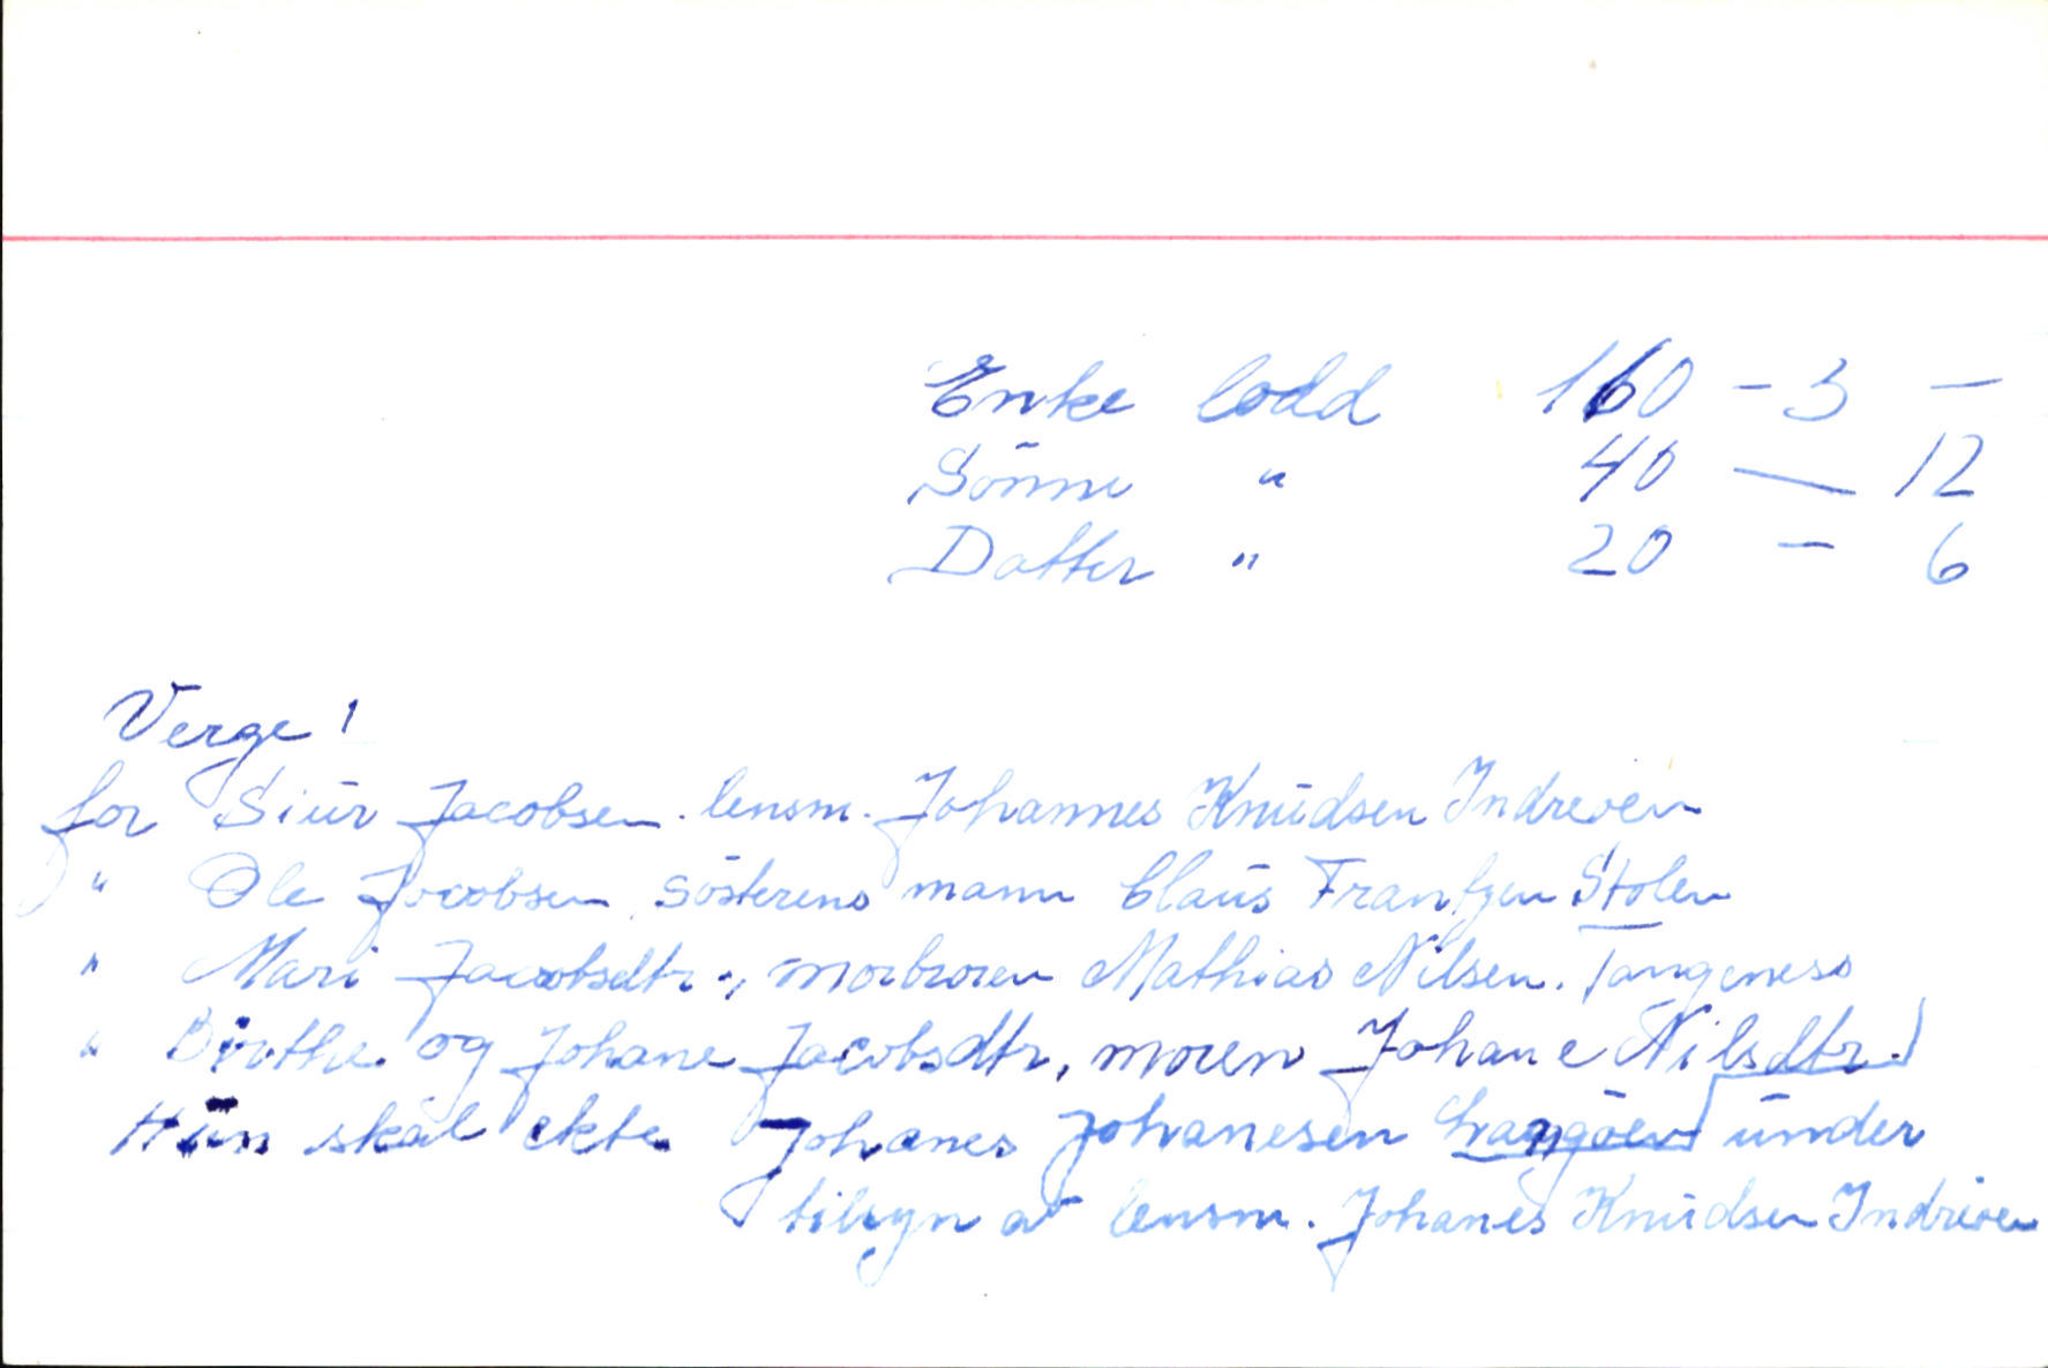 Enke lodd 160 - 3 -
Sönne " 40 — 12
Datter " 20 - 6
Verge!
for Siür Jacobsen. lensm. Johannes Knüdsen Indreøen
" Ole Jacobsen, sösterens mann Claüs Frantzen Stolen
" Mari Jacobsdtr., morbroren Mathias Nilsen. Tangeness
" Birthe og Johane Jacobsdtr, moren Johane Nilsdtr.
Hün skal ekte Johanes Johanesen ünder
tilsyn av lensm. Johanes Knüdsen Indreøen